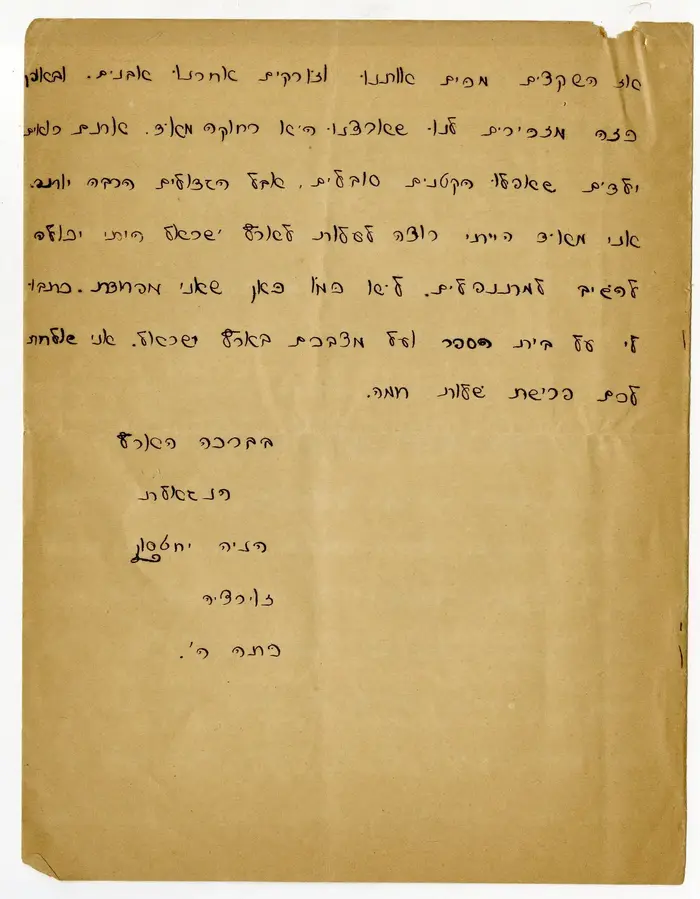 אז השקצים מכים אותנו וזורקים אחרנו אבנים. ובאופן
כזה מזכירים לנו שארצנו היא רחוקה מאד. אתם רואים
ילדים שאפלו הקטנים סובלים, אבל הגדולים הרבה יותר.
אני מאד הייתי רוצה לעלות לארץ ישראל הייתי יכולה
להגיב למתנפלים. לא כמו כאן שאני מפחדת. כתבו
לי על בית הספר ועל מצבכם בארץ ישראל. אני שולחת
לכם פרישת שלום חמה.
בברכה הארץ
הנגאלת
הניה
זוירציה
כתה ה'.